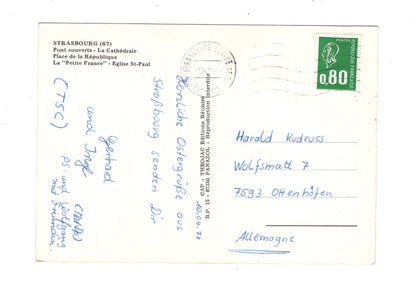 STRASBOURG (67)
Pont couverts - La Cathédrale
Place de la République
La "Petite France" - Eglise St-Paul
Herzliche Ostergrüße aus
Straßbourg senden Dir
Gerhard
und Inge
(TSC)
PS: und Wolfgang
und Freundin.
CAP - THEOJAC Editions Réunies
B.P. 15 - 87350 PANAZOL - Reproduction interdite
STRASBOURG
0,80
Harald Kudruss
Wolfsmatt 7
7593 Ottenhöfen
Allemagne